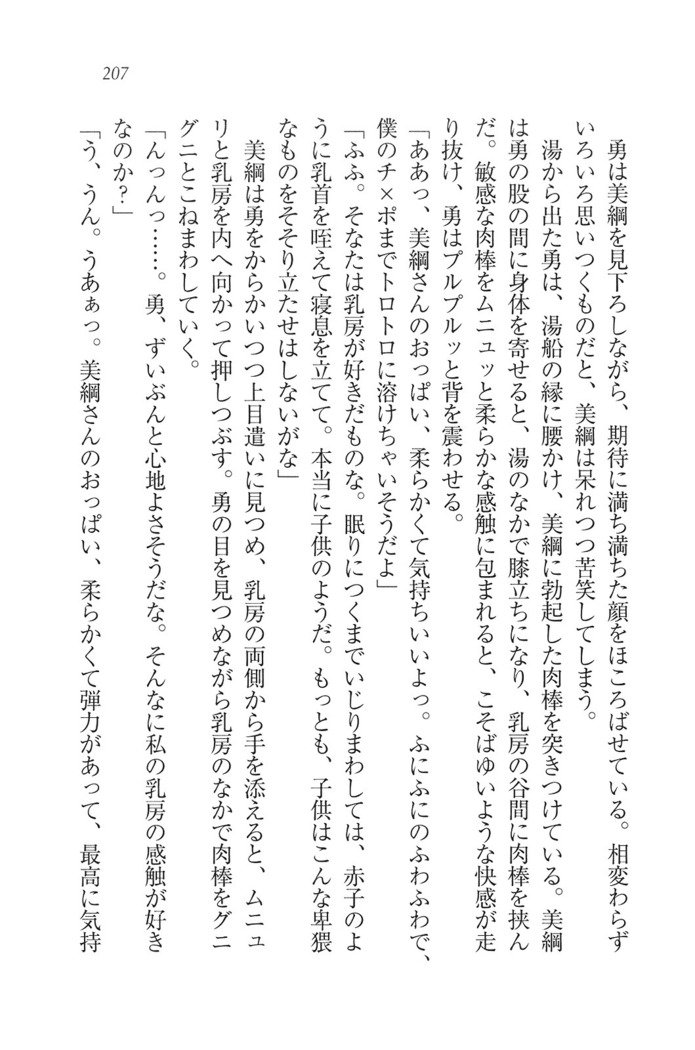 207
勇は美綱を見下ろしながら、期待に満ち満ちた顔をほころばせている。相変わらず
いろいろ思いつくものだと、美綱は呆れつつ苦笑してしまう。
湯から出た勇は、湯船の縁に腰かけ、美綱に勃起した肉棒を突きつけている。美綱
は勇の股の間に身体を寄せると、湯のなかで膝立ちになり、乳房の谷間に肉棒を挟ん
だ。敏感な肉棒をムニュッと柔らかな感触に包まれると、こそばゆいような快感が走
り抜け、勇はプルプルッと背を震わせる。
「ああっ、美綱さんのおっぱい、柔らかくて気持ちいいよっ。ふにふにのふわふわで、
僕のチ×ポまでトロトロに溶けちゃいそうだよ」
「ふふ。そなたは乳房が好きだものな。眠りにつくまでいじりまわしては、赤子のよ
うに乳首を咥えて寝息を立てて。本当に子供のようだ。もっとも、子供はこんな卑猥
なものをそそり立たせはしないがな」
美綱は勇をからかいつつ上目遣いに見つめ、乳房の両側から手を添えると、ムニュ
リと乳房を内へ向かって押しつぶす。勇の目を見つめながら乳房のなかで肉棒をグニ
グニとこねまわしていく。
「んっんっ……。勇、ずいぶんと心地よさそうだな。そんなに私の乳房の感触が好き
なのか？」
「う、うん。うあぁっ。美綱さんのおっぱい、柔らかくて弾力があって、最高に気持